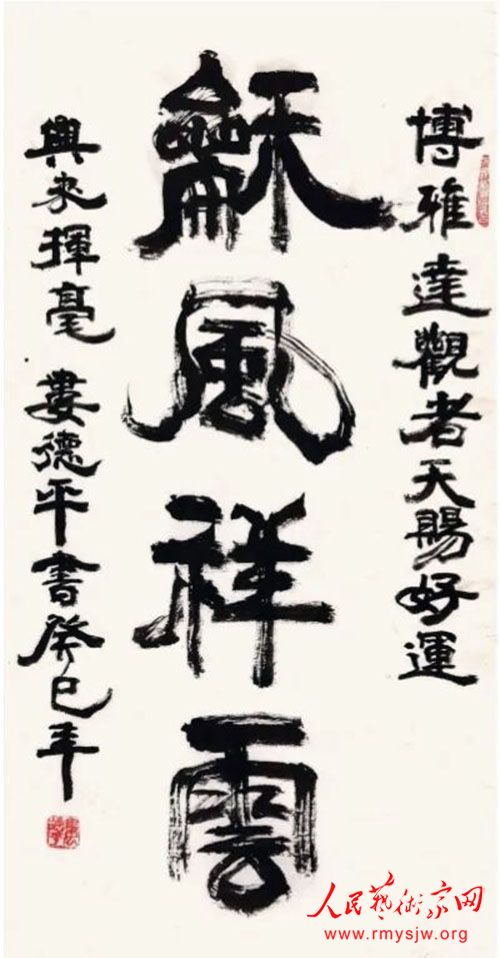 博雅達觀者天賜好運
龢風祥雲
興來揮毫 婁德平書癸巳年
人民藝術家网
www.rmysjw.org